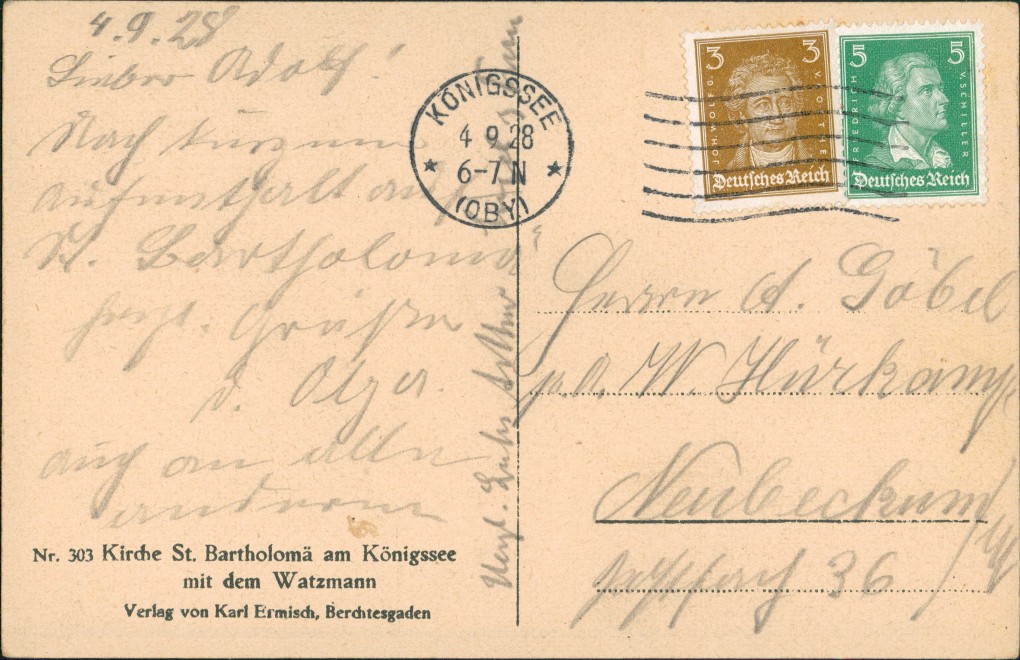 4.9.28
Lieber Adolf!
Nach kurzem
Aufenthalt auf
St. Bartholomä
herzl. Grüße
d. Olga.
auch an alle
anderen
Herzl. Gruß Arthur
Nr. 303 Kirche St. Bartholomä am Königssee
mit dem Watzmann
Verlag von Karl Ermisch, Berchtesgaden
KÖNIGSSEE
4 9 28
6-7 N
(OBY)
3 3
JOH. WOLFG. V. GOETHE
Deutsches Reich
5 5
FRIEDRICH V. SCHILLER
Deutsches Reich
Herrn A. Göbel
p. A. W. Hürkamp
Neubeckum
Postfach 36